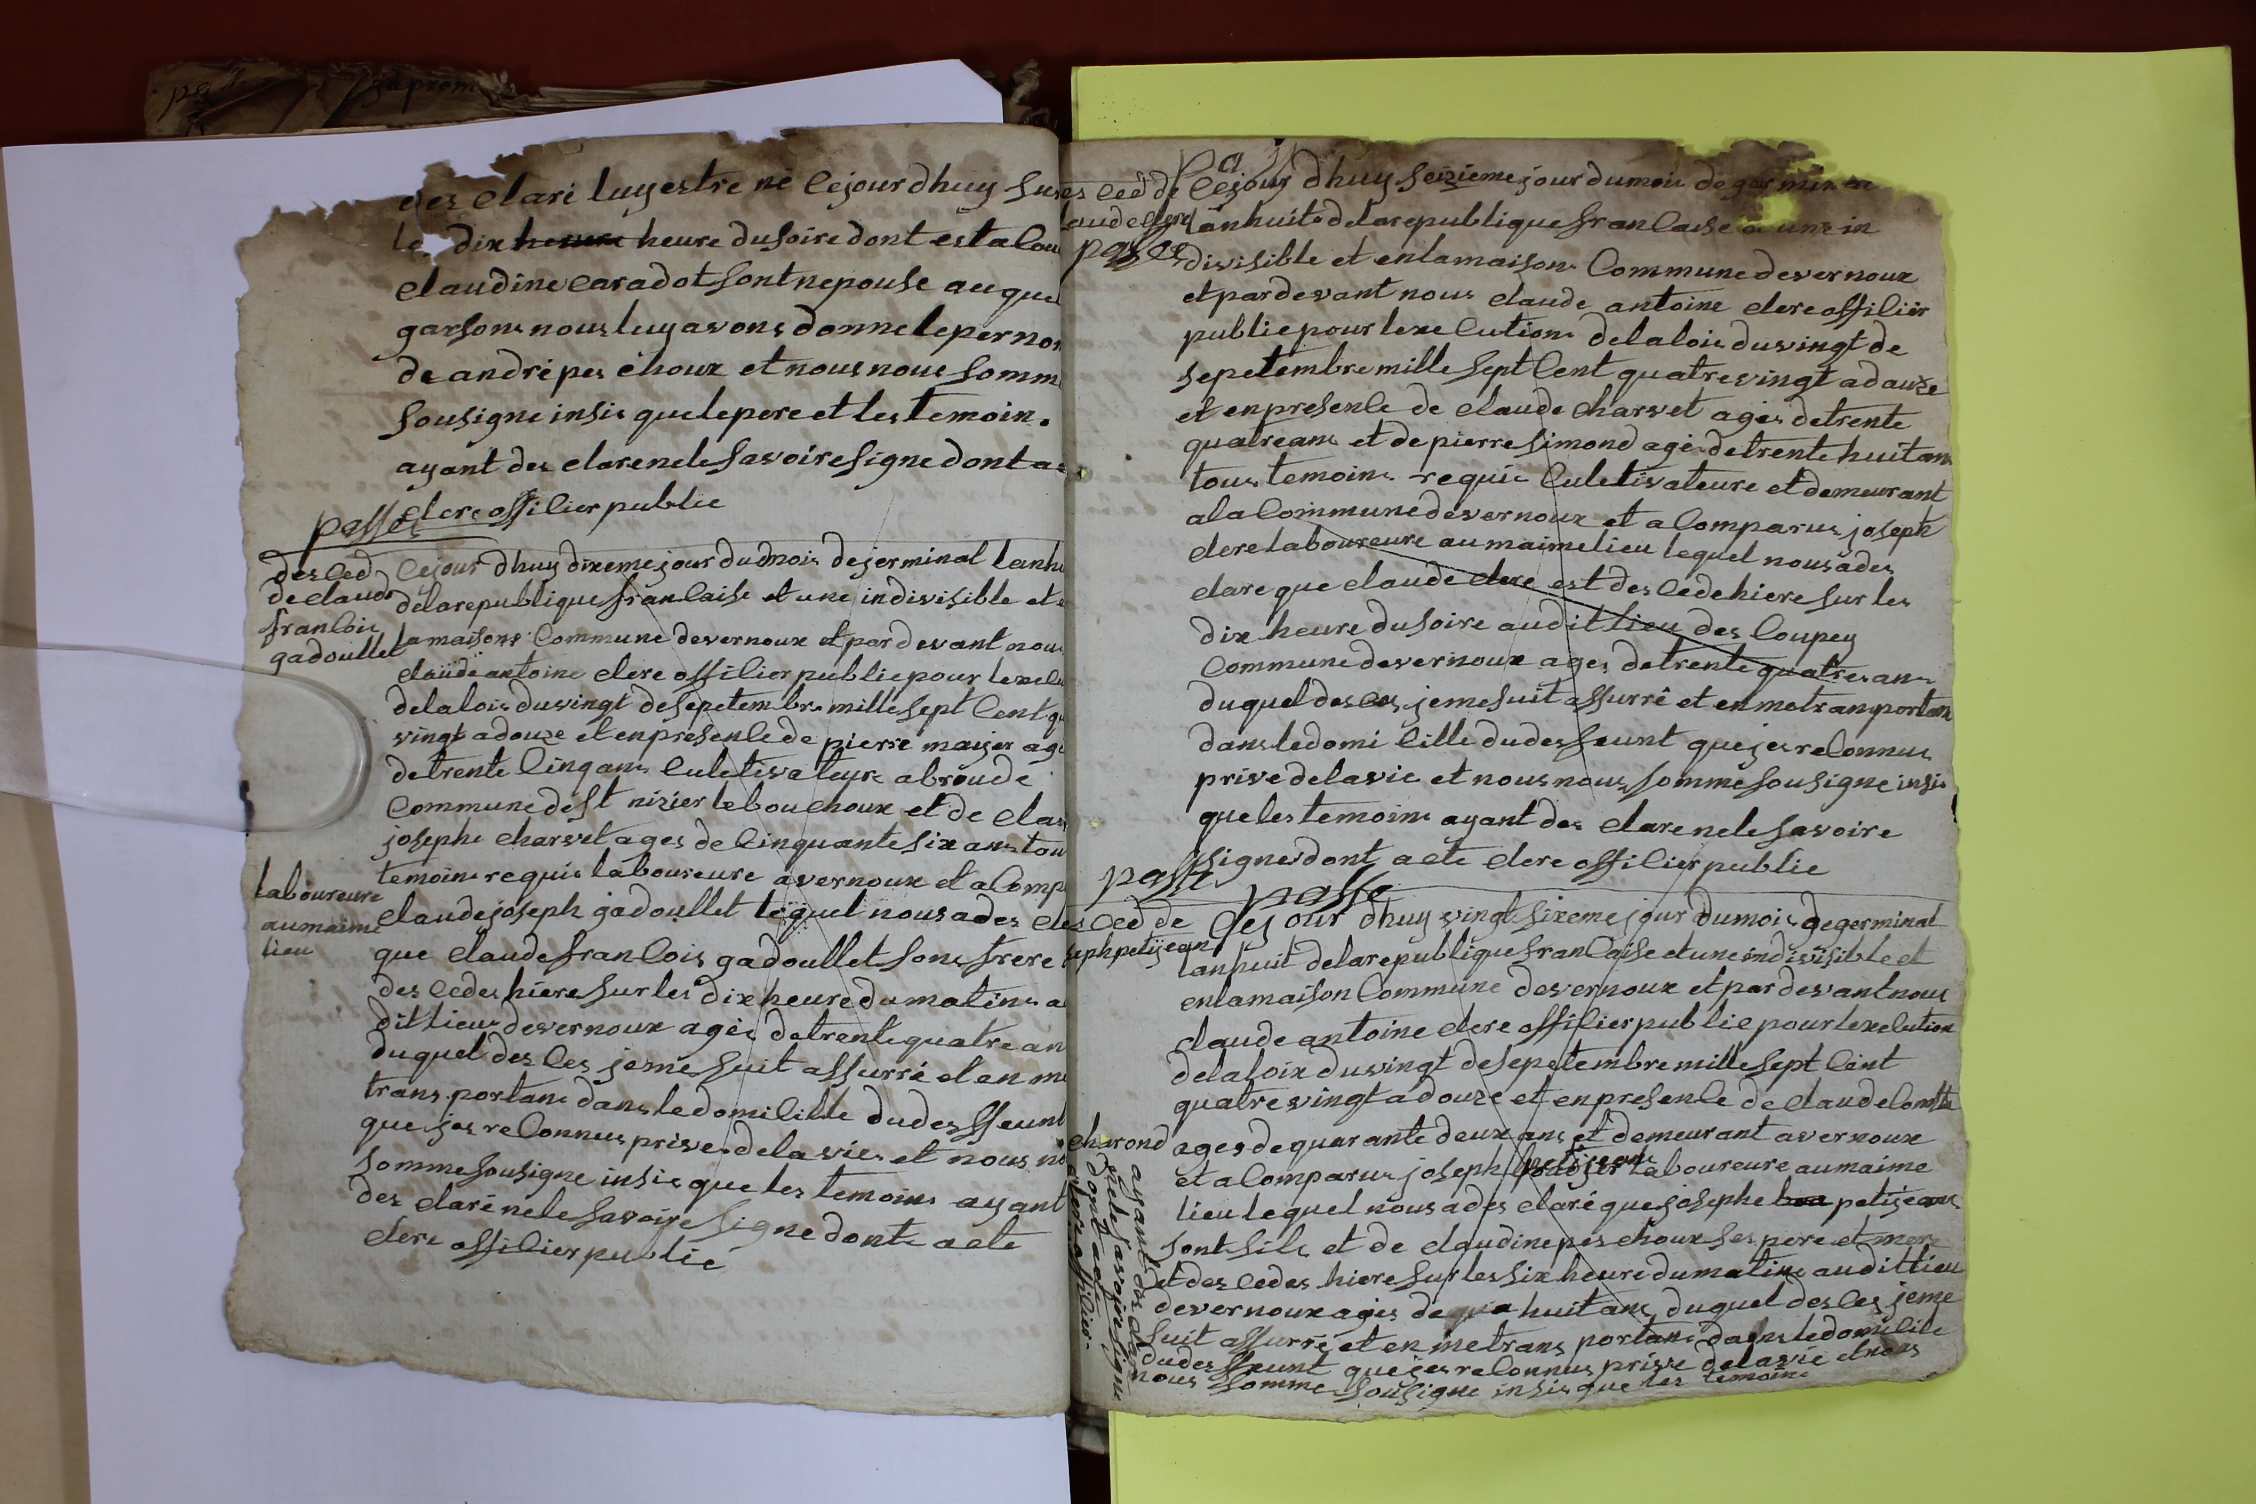 des clare luy estre né Cejour dhuy sur
le dix heure heure du soire dont est a lou
claudine Caradot sont nepouse auquel
garsons nous luy avons donne le per nom
de andre pes choux et nous nous somme
sousigne insis que le pere et les temoin
ayant des clare ne le savoire signe dont a
clere offilier publie
passes
des Ced
de claude
franlois
gadoullet
Cejour dhuy dixeme jour du mois de jerminal lanhu
de la republique franlaise et une indivisible et
la maisons Commune de vernoux et par devant nous
claude antoine clere offilier publie pour lexelu
de la lois du vingt de sepetembre mille sept Cent qu
vingt a douze et en presenle de pierre maijer age
de trente Cinq ans Culetivateure a broude
Commune de St nizier le bouchoux et de clau
josephe charvet ages de Cinquante six ans tou
temoins requis laboureure a vernoux et a Comp
laboureure
au maime
lieu
claude joseph gadoullet lequel nous a des cle
que claude franlois gadoullet sons frere
des Cedes hiere sur les dix heure du matins a
dit lieu de vernoux ages de trente quatre an
du quel des Ces je me suit assurré et en me
trans portans dans le domilille du desseunt
que jes re Connus prives de la vie et nous no
somme sousigne insis que les temoins ayant
des claré ne le savoire signe donte acte
clere offilier publie
es Ced de
laude clere
passes
Cejour dhuy seizieme jour du mois de germinal
lanhuite de la republique franlaise et une in
divisible et en la maisons Commune de vernoux
et par devant nous claude antoine clere offilier
publie pour lexelutions de la lois du vingt de
sepetembre mille sept Cent quatre vingt a douze
et en presenle de claude charvet ages de trente
quatre ans et de pierre simond age de trente huit ans
tous temoins requis Culetivateure et demeurant
a la Commune de vernoux et a Comparus joseph
clere laboureure au maime lieu lequel nous a des
clare que claude clere est des Cede hiere sur les
dix heure du soire audit lieu des Coupey
Commune de vernoux ages de trente quatre ans
du quel des Ces je me suit assurré et en me transportans
dans le domi Cille du desseunt que jes re Connus
prive de la vie et nous nous somme sousigne insis
que les temoins ayant des clare ne le savoire
signe dont acte clere offilier publie
passe passe
es Ced de
seph petijean
Cejour dhuy vingt sixeme jour du mois de germinal
lanhuit de la republique franlaise et une indivisible et
en la maison Commune de vernoux et par devant nous
claude antoine clere offilier publie pour lexelution
de la loix du vingt de sepetembre mille sept Cent
quatre vingt a douze et en presenle de claude
charond ages de quarante deux ans et demeurant a vernoux
et a Comparus joseph petijean laboureure au maime
lieu lequel nous a des claré que josephe petijean
sont fils et de claudine pes choux ses pere et mere
et des Cedes hiere sur les six heure du matin audit lieu
de vernoux ages de huit ans du quel des Ces je me
suit assurré et en me trans portans dans le domilile
du desseunt que jes re Connus prive de la vie et nous
nous somme sousigne insis que les temoins
ayant des clare
ne le savoire signe
dont acte
clere offilier